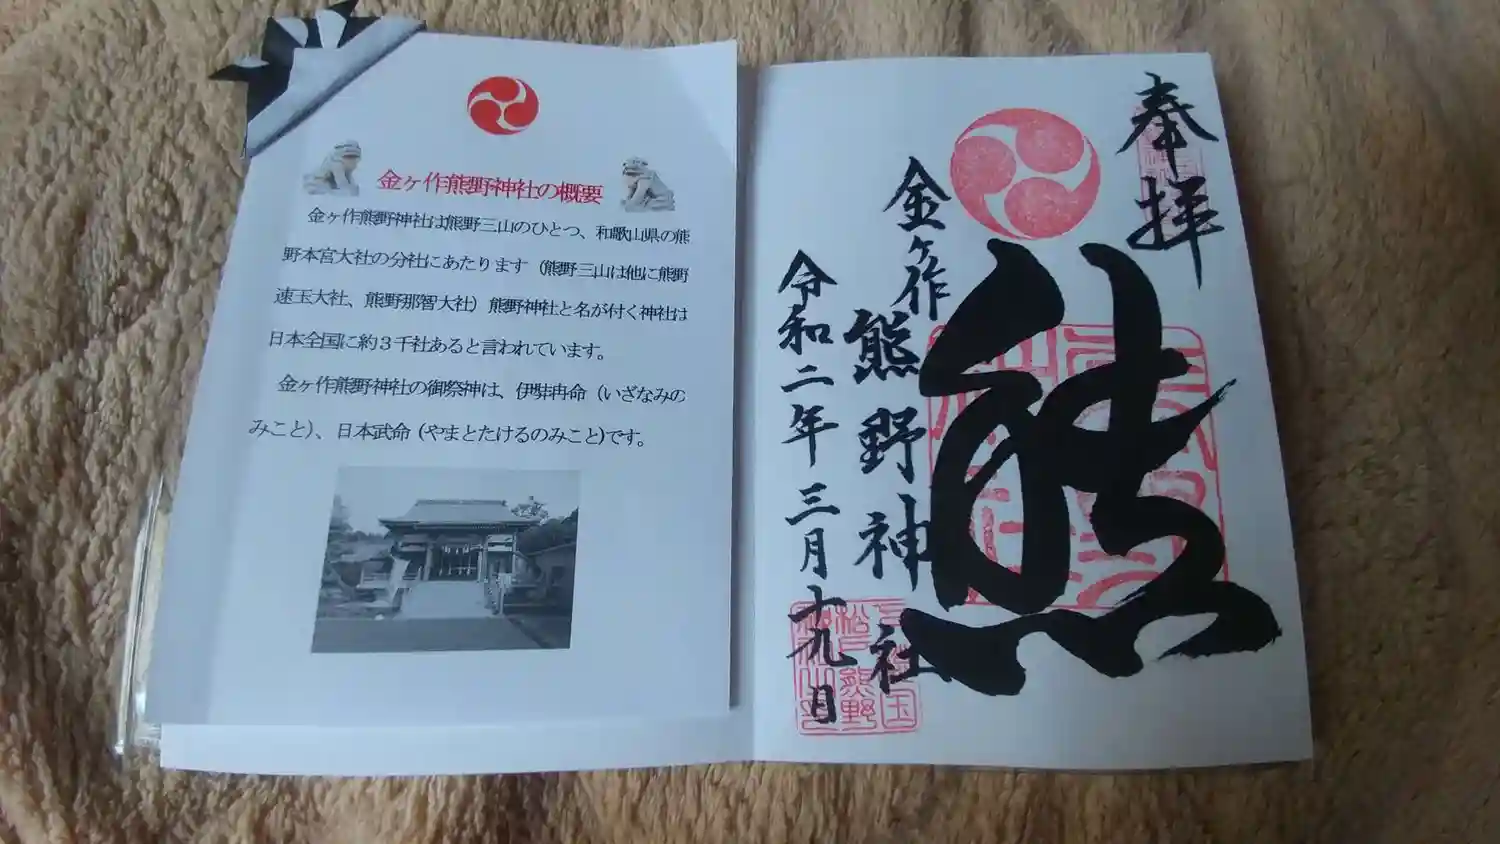 金ヶ作熊野神社の概要
金ヶ作熊野神社は熊野三山のひとつ、和歌山県の熊
野本宮大社の分社にあたります（熊野三山は他に熊野
速玉大社、熊野那智大社）熊野神社と名が付く神社は
日本全国に約３千社あると言われています。
金ヶ作熊野神社の御祭神は、伊弉冉命（いざなみの
みこと）、日本武命（やまとたけるのみこと）です。
奉拝
熊
金ヶ作熊野神社
令和二年三月十九日